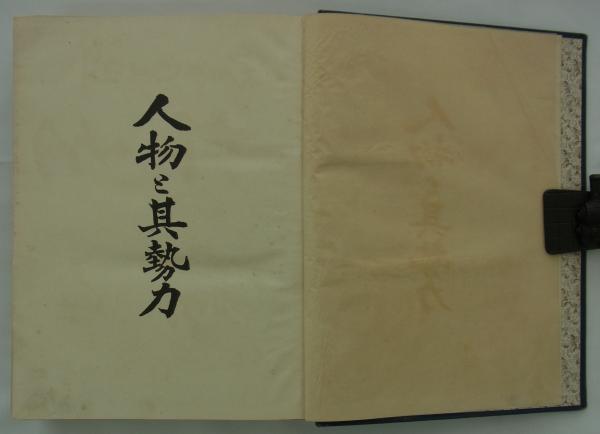 人物と其勢力